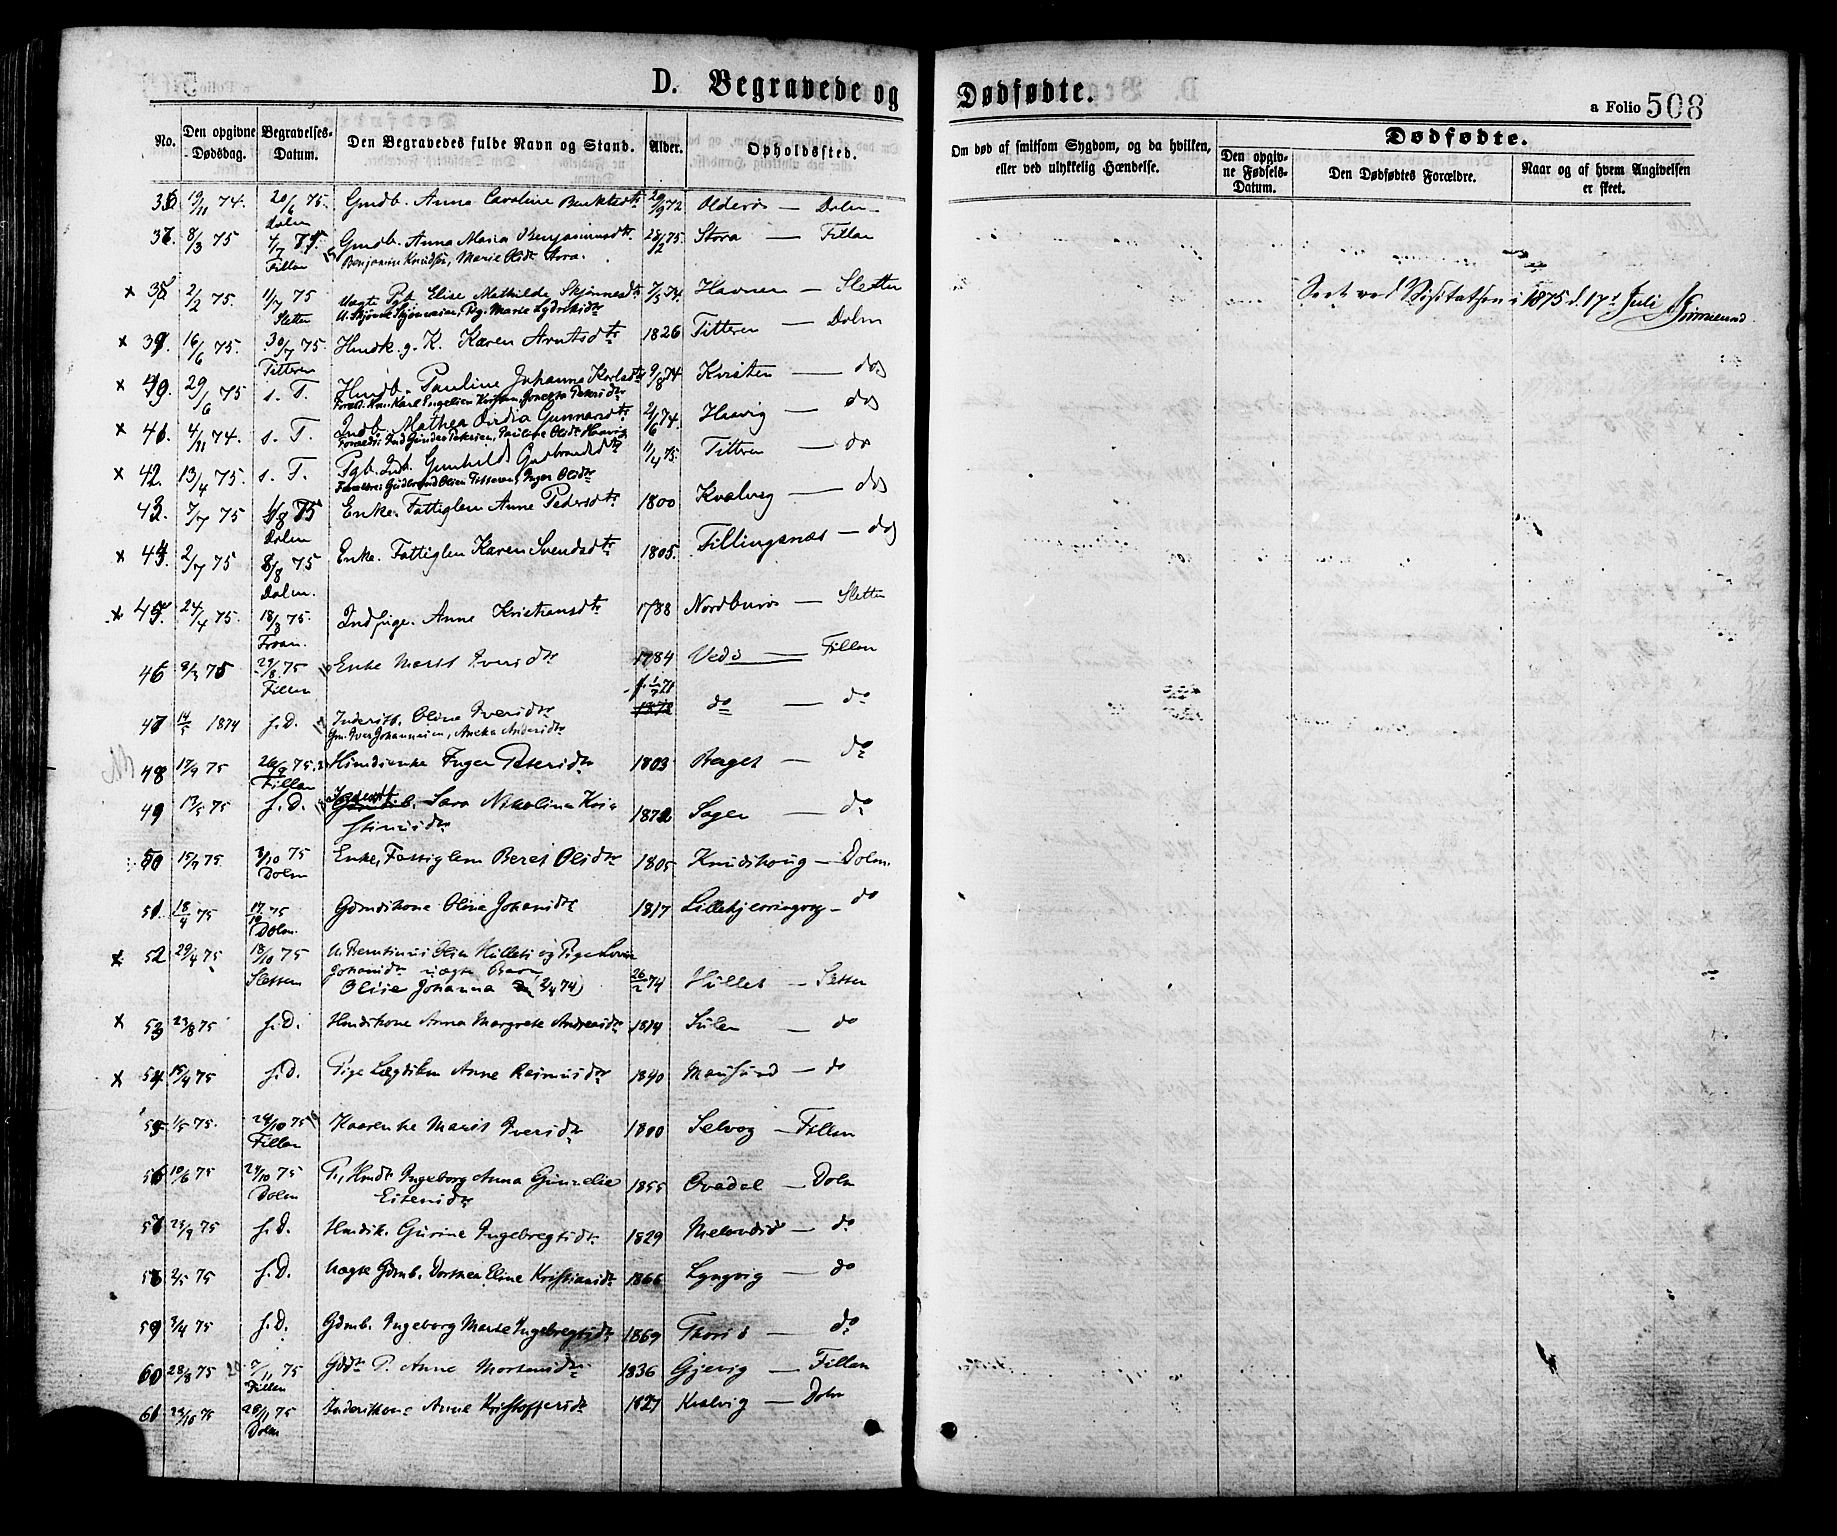 D. Begravede og Dødfødte.
a Folio 508
No.
Den opgivne Dødsdag.
Begravelses-Datum.
Den Begravedes fulde Navn og Stand.
Alder.
Opholdssted.
Om død af smitsom Sygdom, og da hvilken, eller ved ulykkelig Hændelse.
Dødfødte.
Den opgivne Fødsels-Datum.
Den Dødfødtes Forældre.
Naar og af hvem Angivelsen er skeet.
19/11 74. 20/6 75. Dolm Gmdb. Anna Caroline 20/9 72 Olderøs — Dolm
37. 8/3 75 4/7 75. Fillan Gmdb. Anna Maria Benjaminsdtr 28/2 75. Stora — Fillan
Benjamin Knudsen, Marie Olsdtr
x 38. 2/2 75. 11/7 75 Sletten Uægte Pgb. Elise Mathilde Skjønnesdtr 7/3 74. Havnen — Sletten
Seet ved Visitatsen i 1875 d. 17d Juli
x 39. 16/6 75. 30/7 75. Titteren Hmdk. g. K. Karen Arntsdtr 1826 Titteren — Dolm
x 40. 29/6 75 s. T. Hmdb. Pauline Johanna Karlsdtr 9/8 74 Kvisten — do
x 41. 4/11 74. s. T. Indb. Mathea Gunnarsdtr 2/6 74. Haavig — do
x 42. 13/4 75. s. T. Pgb. Indb. Gunhild Gudbrandsdtr 11/4 75. Titteren — do
43. 7/7 75 1/8 75 Dolm Enke. Fattiglem Anne Pedersdtr 1800 Kvalvig — do
x 44. 2/7 75 8/8 75 Dolm. Enke. Fattiglem Karen Svendsdtr 1805. Fillingsnæs — do
x 45. 24/4 75. 18/8 75. Froan. Indpige. Anne Kristiansdtr 1788 Nordburøs — Sletten
46 8/3 75 29/8 75 Fillan Enke Marit Iversdtr 1784 Vedø — Fillan
47 14/5 1874 s. D. Inderstb. Oline Iversdtr 1872 do — do
Gm. Iver Johannesen, Aneka Andersdtr
48 17/9 75 26/9 75. Fillan Hmdsenke Inger Petersdtr 1803 Berget — do
49 13/5 75 s. D. Sara Nikolina Kristinusdtr 1872 Sagen — do
50 15/9 75 3/10 75 Dolm Enke, Fattiglem Beret Olsdtr 1805 Knudshoug — Dolm.
51. 18/4 75 17/10 75 Dolm. Gdmdskone Oline Johansdtr 1817 — do
x 52 29/4 75 18/10 75 Sletten U. Berntinus Olsen Hullet og Pige
Johansdtr uægte Barn
Olise Johanna 26/2 74 Hullet — Sletten
x 53 23/8 75 s. D. Hmdskone Anna Margrete Andreasdtr 1814 Sulen — do
x 54 15/4 75 s. D. Pige Lægdslem Anne Rasmusdtr 1840 Mausund — do
55 1/5 75. 24/10 75 Fillan Kaarenke Marit Iversdtr 1800 Selvog — Fillan
56 10/6 75 24/10 75 Dolm P., Hmdt Ingeborg Anna Gunnelie
Eitensdtr 1855 Ovedal — Dolm
57 23/9 75 s. D. Hmdsk. Gurine Ingebregtsdtr 1829 Melandsø — do
58 2/5 75 s. D. Uægte Gdmb. Dorthea Eline Kristiansdtr 1866 Lyngvig — do
59 3/4 75 s. D. Gdmb. Ingeborg Marte Ingebregtsdtr 1869 Thorsø — do
60 28/8 75 7/11 75 Fillan Gddtr P. Anne Mortensdtr 1836 Gjevig — Fillan
61 23/10 75 28/11 75 Dolm Inderstkone Anne Kristoffersdtr 1827 Kvalvig — Dolm